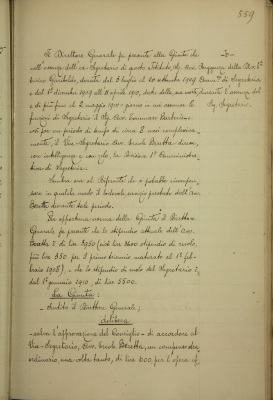 559
Il Direttore Generale fa presente alla Giunta che
nell'assenza dell'ex Segretario di questo Istituto,
Garibaldo, durata dal 5 luglio al 20 settembre 1909
e dal 1° dicembre 1909 all' 11 aprile 1910, data della sua morte, durante l'assenza del
e di più fino al 2 maggio 1910 - giorno in cui assunse le
Segretario.
funzioni di Segretario il Sig. Avv. Tommaso
per un periodo di tempo di circa 8 mesi complessiva-
mente, il Vice-Segretario Avv. Beretta
con intelligenza e con zelo, la Divisione 1ª Amministra-
tiva di Segreteria.
Sembra ora al Riferente che si potrebbe ricompen-
sare in qualche modo il lodevole servizio prestato dall'Avv.
Beretta durante tale periodo.
Per opportuna norma della Giunta il Direttore
Generale fa presente che lo stipendio attuale dell'Avv.
Beretta è di lire 3950 (cioè lire 3600 stipendio di ruolo,
più lire 350 per il primo biennio maturato al 1° feb-
braio 1908), e che lo stipendio di ruolo del Segretario è,
dal 1° gennaio 1910, di lire 5500.
La Giunta:
- Sentito il Direttore Generale;
delibera
- salva l'approvazione del Consiglio - di accordare al
Vice-Segretario, Avv. Beretta, un compenso stra-
ordinario, una volta tanto, di lire 600, per l'opera